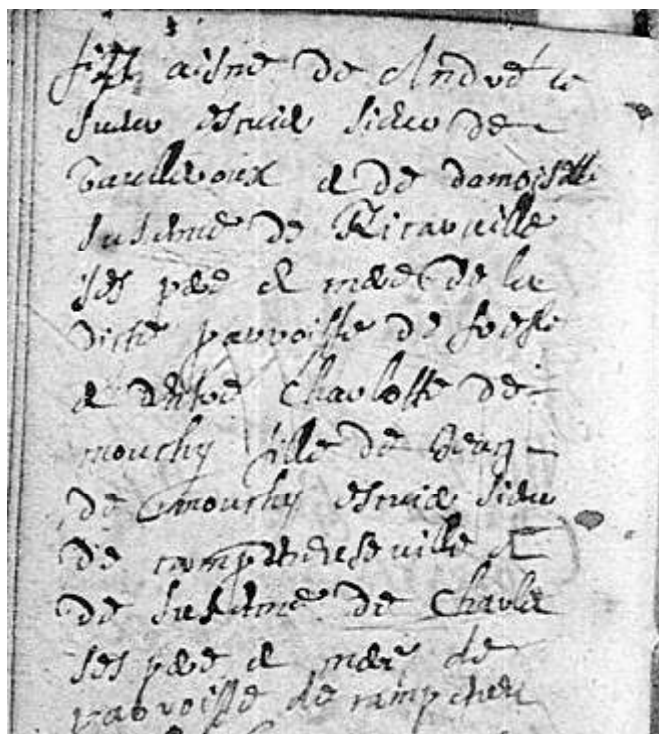 filz aisné de André le
sueur escuier sieur de
et de damoiselle
susanne de Ricarville
ses pere et mere de la
dicte parroisse de
et entre Charlotte de
mouchy fille de
de mouchy escuier sieur
de campdeuseville et
de susanne de Charle
ses pere et mere de
parroisse de